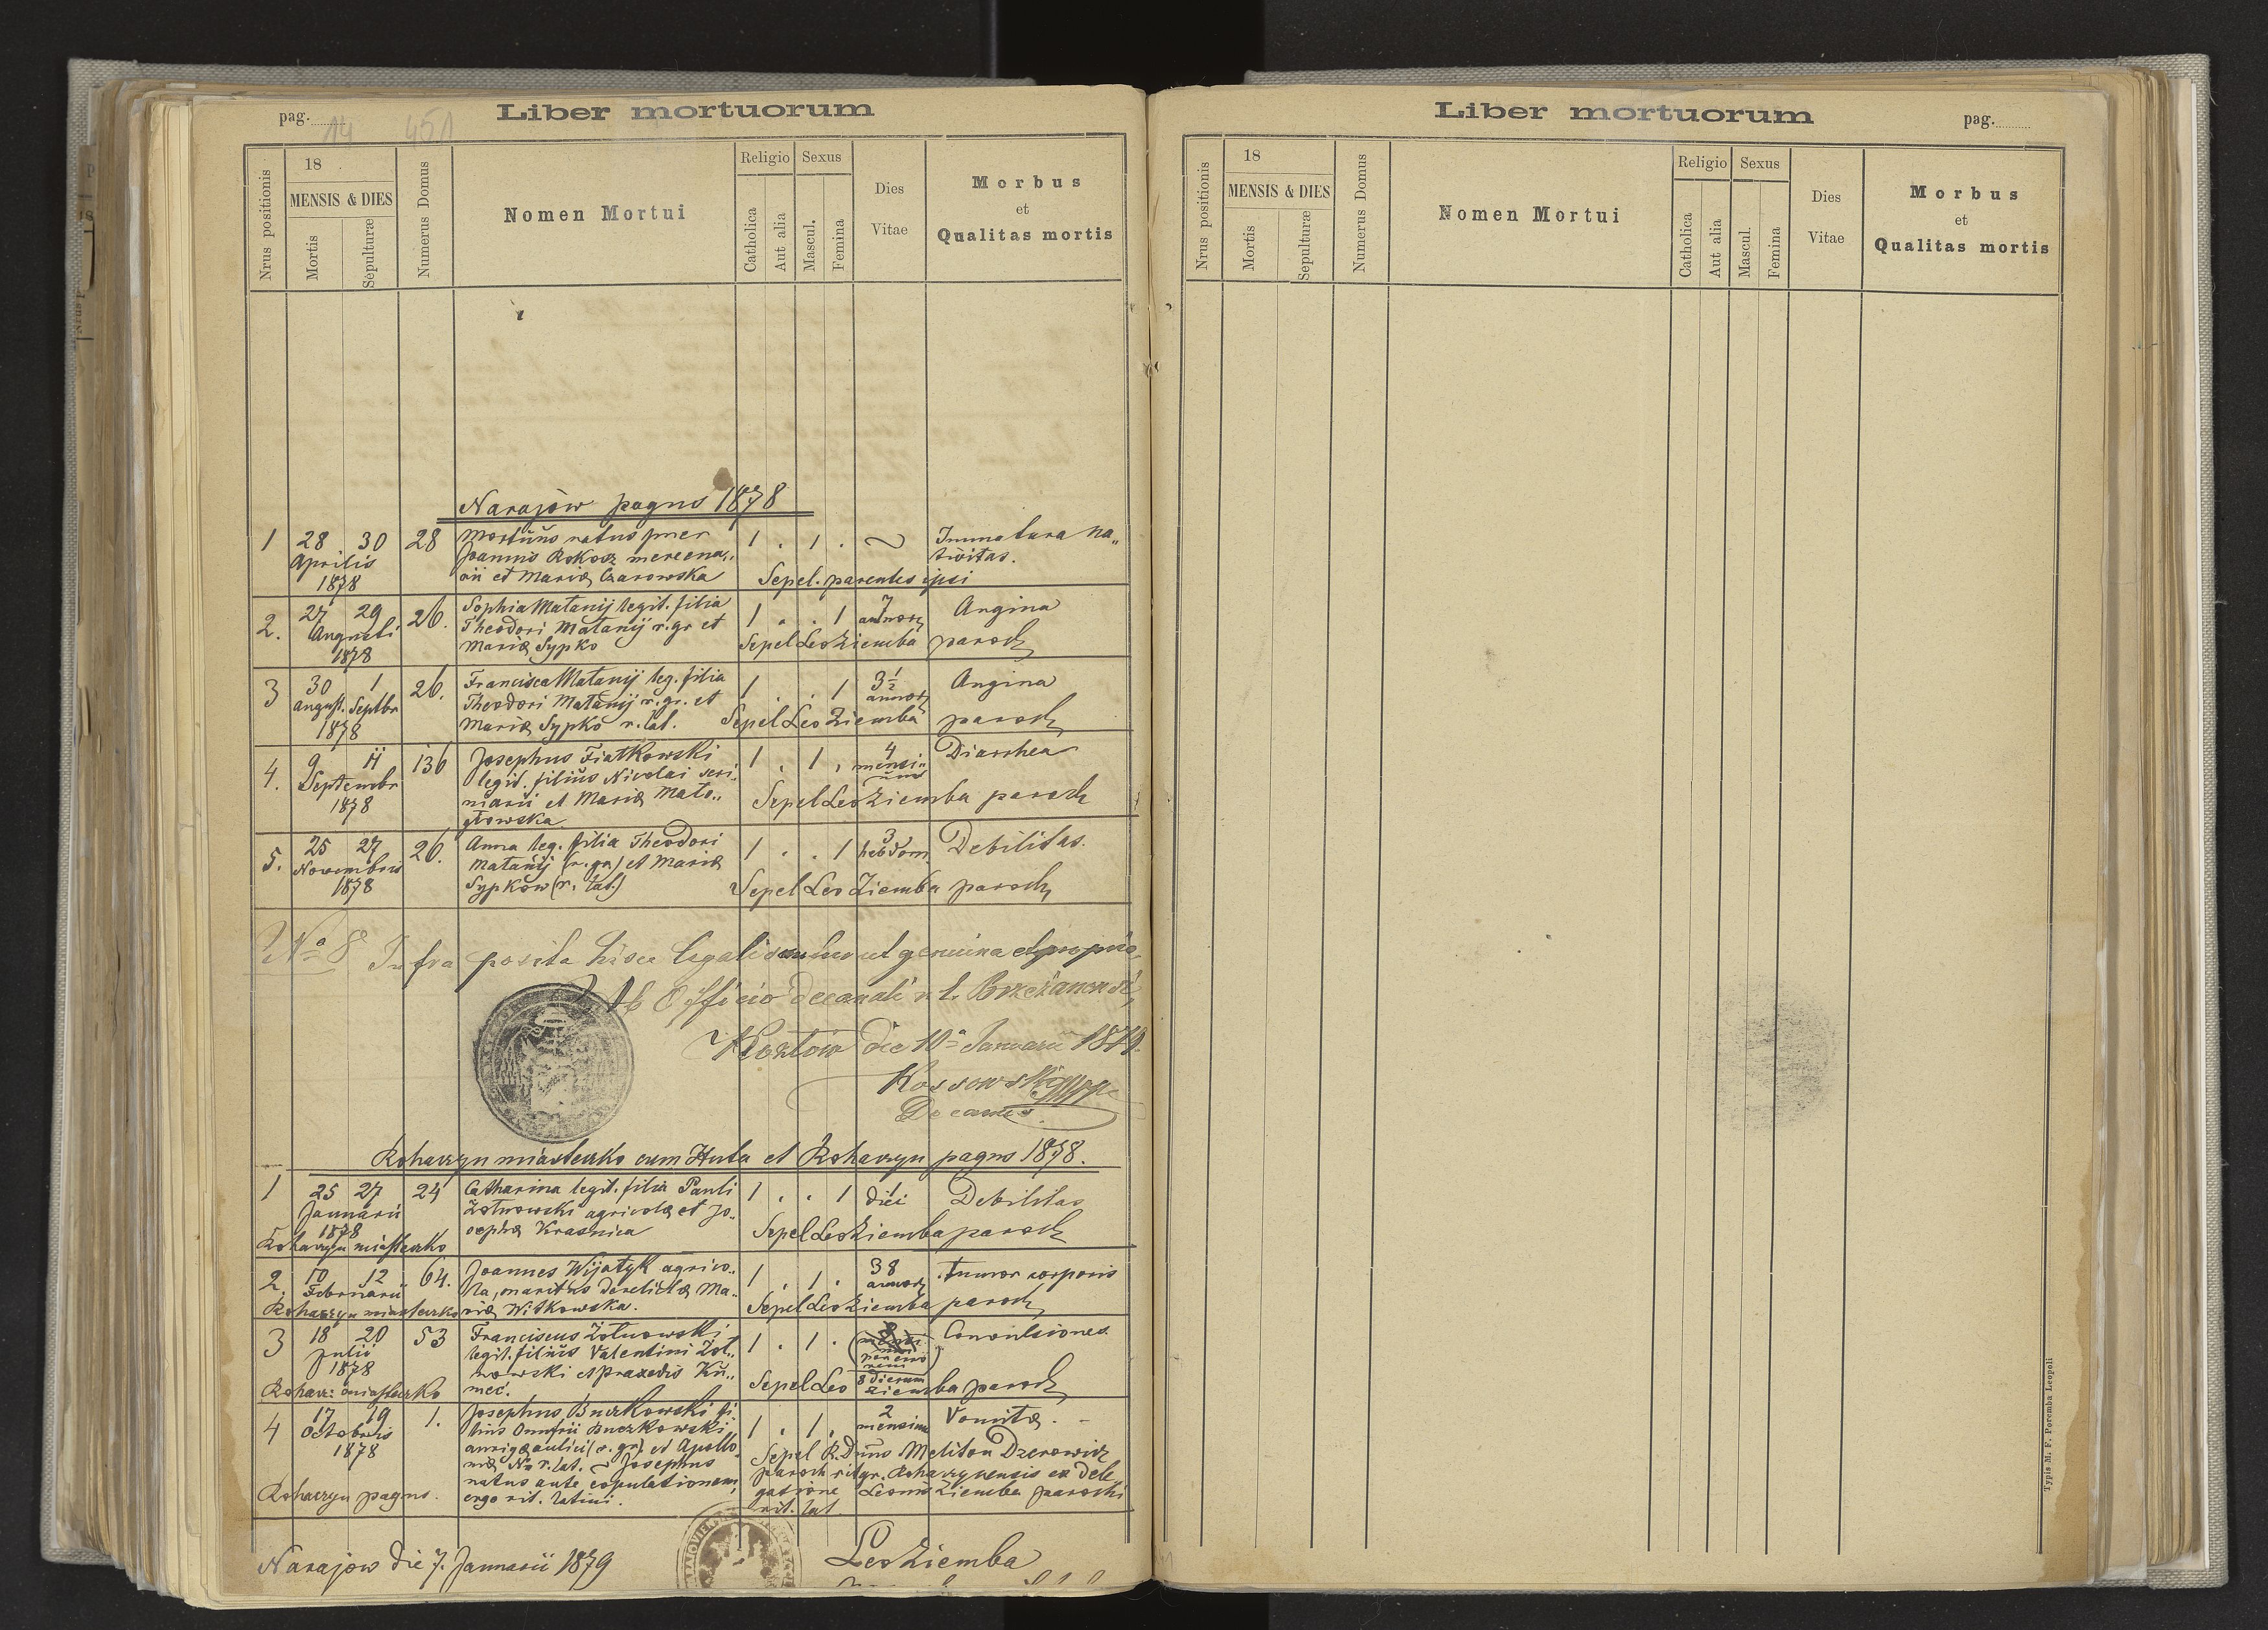 pag. 14 451
Liber mortuorum
Nrus positionis
18
MENSIS & DIES
Mortis
Sepulturæ
Numerus Domus
Nomen Mortui
Religio
Catholica
Aut alia
Sexus
Mascul.
Femina
Dies
Vitae
Morbus
et
Qualitas mortis
Narajów pagus 1878
1 28 30 28 Mortuus natus puer 1 . 1 . ~ Immatura na„
Aprilis Joannis Rokosz mercena„ tivitas.
1878 rii et Mariæ Czarowska Sepel. parentes ipsi
2. 27 29 26. Sophia Matanij legit. filia 1 . . 1 7 Angina
Augusti Theodori Matanij r. gr et annor
1878 Mariæ Sypko Sepel Leo Ziemba paroch
3 30 1 26. Francisca Matanij leg. filia 1 . . 1 3½ Angina
august. Septbr Theodori Matanij r. gr. et annor
1878 Mariæ Sypko r. lat. Sepel Leo Ziemba paroch
4. 9 11 136 Josephus Fiałkowski 1 . 1 . 4 Diarrhea
Septembr legit. filius Nicolai scri„ mensi„
1878 niarii et Mariæ Mało„ um
głowska Sepel Leo Ziemba paroch
5. 25 27 26. Anna leg. filia Theodori 1 . . 1 3 Debilitas.
Novembris Matanij (r. gr) et Mariæ hebdom
1878 Sypkow (r. lat.) Sepel Leo Ziemba paroch
No 8 Infra posita hisce legalisantur ut genuina et propria
Ab Officio decanali r. l. Brzeżanensi,
Kozłów die 10a Januarii 1879.
Kossowski
Decanus
Rohaczyn miasteczko cum Huta et Rohaczyn pagus 1878.
1 25 27 24 Catharina legit. filia Pauli 1 . . 1 1 Debilitas
Januarii Żołnowski agricolæ et Jo„ diei
1878 sephæ Krasnica Sepel Leo Ziemba paroch
Rohaczyn miasteczko
2. 10 12 64. Joannes Wijatyk agrico„ 1 . 1 . 38 Tumor corporis
Februarii la, maritus derelictæ Ma„ annor
Rohaczyn miasteczko riæ Witkowska. Sepel Leo Ziemba paroch
3 18 20 53 Franciscus Żołnowski 1 . 1 . Convulsiones
Julii legit. filius Valentini Żoł„
1878 nowski et Praxedis Ku„ 8 dierum
Rohacz: miasteczko mec. Sepel Leo Ziemba paroch
4 17 19 1. Josephus Buczkowski fi 1 . 1 . 2 Vomitæ. -
Octobris lius Onufrii Buczkowski mensium
1878 aurigæ aulici (r. gr) et Apollo
niæ N= r. lat. ~ Josephus Sepel R. Dnus Meliton Dzerowicz
natus ante copulationem, paroch rit gr. Rohaczynensis ex dele
Rohaczyn pagus. ergo rit. latini. gatione Leonis Ziemba parochi
rit. lat.
Narajow die 7. Januarii 1879
Leo Ziemba
Liber mortuorum
pag.
Nrus positionis
18
MENSIS & DIES
Mortis
Sepulturæ
Numerus Domus
Nomen Mortui
Religio
Catholica
Aut alia
Sexus
Mascul.
Femina
Dies
Vitae
Morbus
et
Qualitas mortis
Typis M. F. Poremba Leopoli